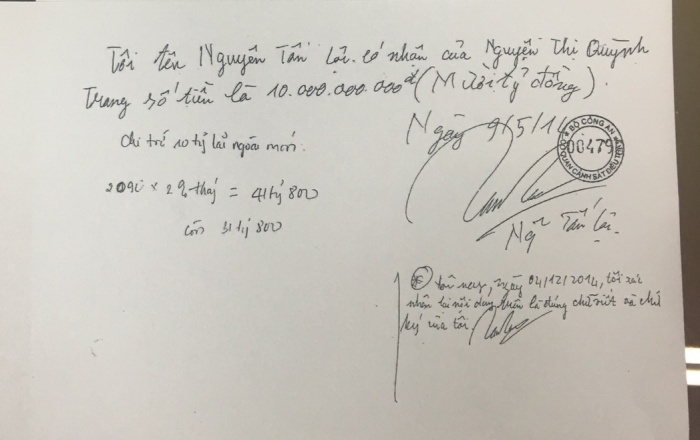 Tôi tên Nguyễn Tấn Lộc. Có nhận của Nguyễn Thị Quỳnh
Trang số tiền là 10.000.000.000đ (Mười tỷ đồng).
Chi trả 10 tỷ lãi ngoài
Ngày 9/5/14
BỘ CÔNG AN
00479
CƠ QUAN CẢNH SÁT ĐIỀU TRA
209 × 2% tháng = 41 tỷ 800
còn 31 tỷ 800
Ng Tấn Lộc
Hôm nay, ngày 04/12/2014, tôi xác
nhận lại nội dung trên là đúng chữ viết và chữ
ký của tôi